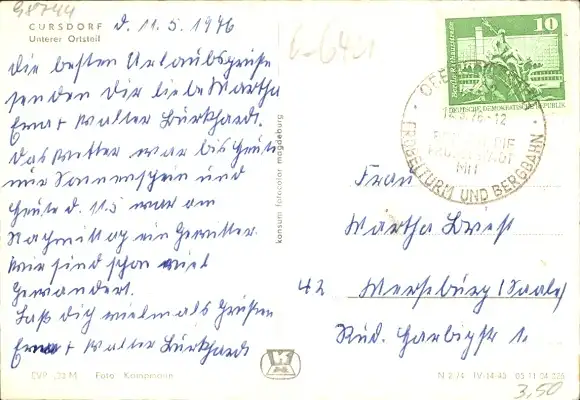 98744
CURSDORF
Unterer Ortsteil
d. 11.5.1976
Die besten Urlaubsgrüße
senden Dir liebe Martha
Erna + Walter Burkhardt.
Das Wetter war bis heute
nur Sonnenschein und
heute d. 11.5 war am
Nachmittag ein Gewitter.
Wir sind schon viel
gewandert.
Laß dich vielmals Grüßen
Erna + Walter Burkhardt
EVP
M Foto: Kampmann
konsum fotocolor magdeburg
10
DEUTSCHE DEMOKRATISCHE REPUBLIK
76-12
MIT
FRÖBELTURM UND BERGBAHN
Frau
Martha
42 Merseburg (Saale)
Rud. Harbigstr 1.
N 2/74 IV-14-45
3,50